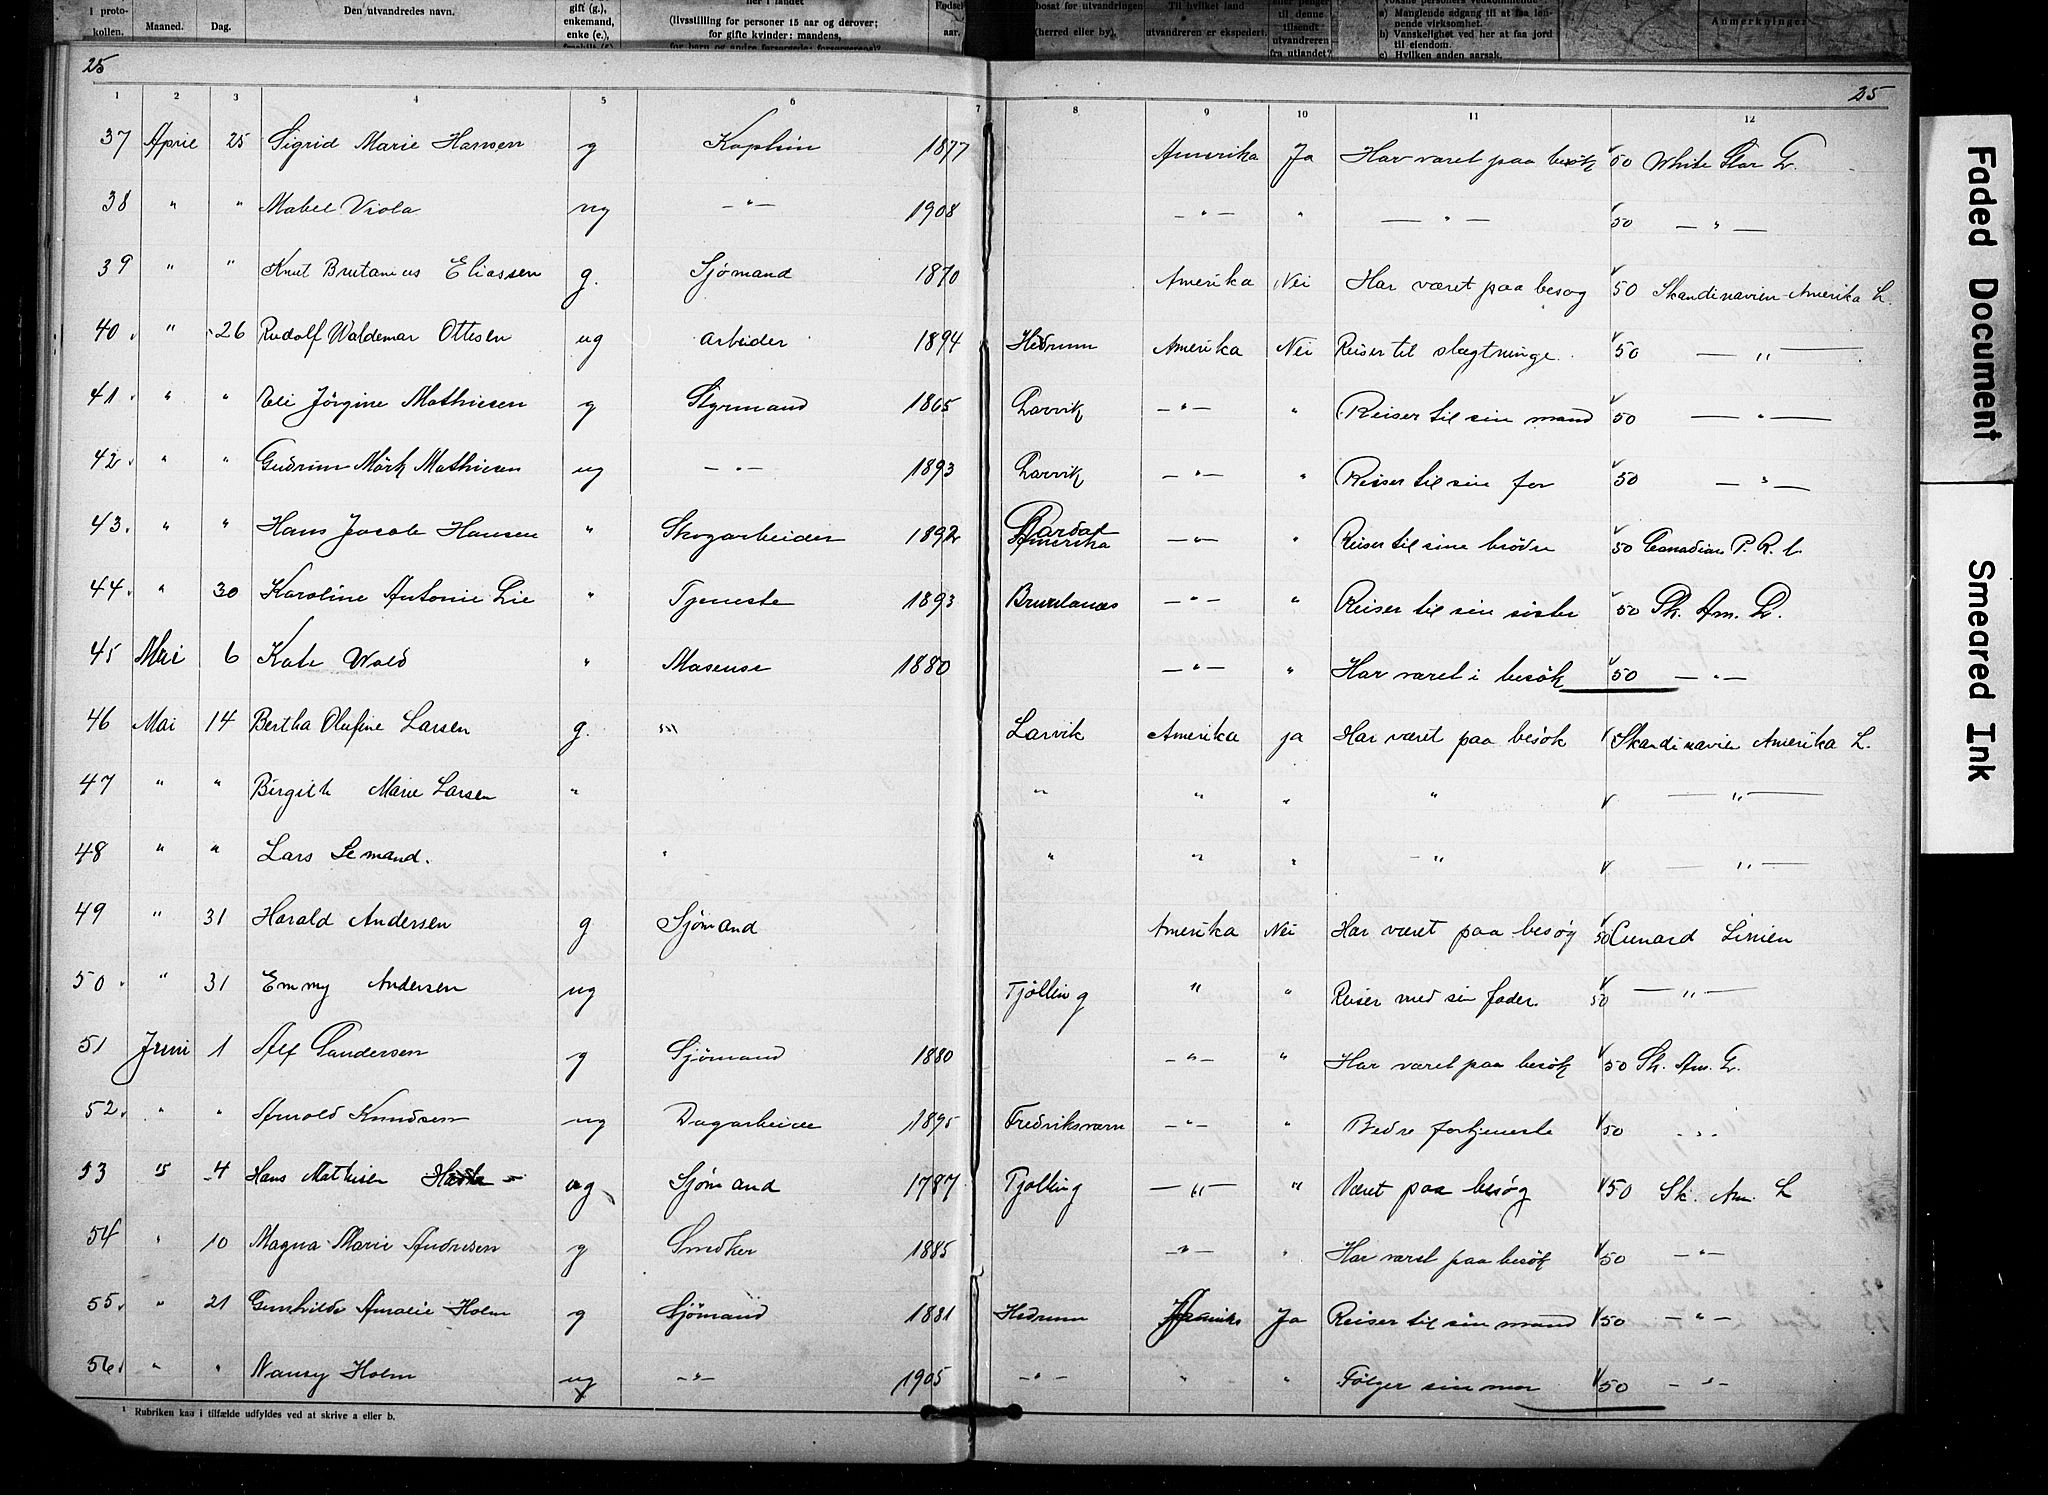 1 proto- Maaned. Dag. Den utvandredes navn. gift (g.), her i landet Fødsel bosat før utvandringen Til hvilket land
kollen. enkemand, (livsstilling for personer 15 aar og derover; aar. (herred eller by), utvandreren er ekspedert.
enke (e.), for gifte kvinder: mandens, til denne tilsendt utvandreren fra utlandet?
a) Manglende adgang til at faa løn-
nende virksomhet.
b) Vanskelighet ved her at faa jord
til eiendom.
c) Hvilken anden aarsak.
Anmerkninger
25 25
1 2 3 4 5 6 7 8 9 10 11 12
37 April 25 Sigrid Marie Hansen g Kaptein 1877 Amerika Ja Har været paa besök 50 White Star L.
38 " " Mabel Viola ug — " — 1908 — " — " — " — 50 — " —
39 " " Knut Brutanius Eliassen g. Sjømand 1870 Amerika Nei Har været paa besøg 50 Skandinavien-Amerika L.
40. " 26 Rudolf Waldemar Ottesen ug arbeider 1894 Hedrum Amerika Nei Reiser til slægtninge. 50 — " —
41. " " Eli Jörgine Mathiesen g Styrmand 1865 Larvik — " — " Reiser til sin mand 50 — " —
42. " " Gudrun Mörk Mathiesen ug — " — 1893 Larvik — " — " Reiser til sin far 50 — " —
43. " " Hans Jacob Hansen " Skogarbeider 1892 Amerika — " — " Reiser til sine brödre 50 Canadian P. R. L.
44. " 30 Karoline Antonie Lie " Tjeneste 1893 Brunlanæs — " — " Reiser til sin sister 50 Sk. Am. L.
45 Mai 6 Kate Wold " Maseuse 1880 — " — " Har været i besök 50 — " —
46 Mai 14 Bertha Olufine Larsen g. Larvik Amerika ja Har været paa besök Skandinavien Amerika L.
47 " " Birgith Marie Larsen " " " " " — " —
48 " " Lars Lemand. " " " " — " — " —
49 " 31 Harald Andersen g Sjømand Amerika Nei Har været paa besøg 50 Cunard Linien
50. " 31 Emmy Andersen ug Tjølling " " Reiser med sin fader 50 — " —
51 Juni 1 Alf Gundersen g Sjømand 1880 — " — " Har været paa besök 50 Sk. Am. L.
52. " " Arnold Knudsen ug Dagarbeider 1895 Fredriksværn — " — " Bedre fortjeneste 50 " "
53 " 4 Hans Mathisen ug Sjømand 1787 Tjølling — " — " Været paa besøg 50 Sk. Am. L
54 " 10 Magna Marie Andresen g Snedker 1885 — " — " Har været paa besök 50 — " —
55. " 21 Gunhilde Amalie Holm g Sjömand 1881 Hedrum Amerika Ja Reiser til sin mand 50 — " —
56. " " Nancy Holm ug — " — 1905 — " — " " Fölger sin mor 50 — " —
¹ Rubriken kan i tilfælde udfyldes ved at skrive a eller b.
Faded Document
Smeared Ink